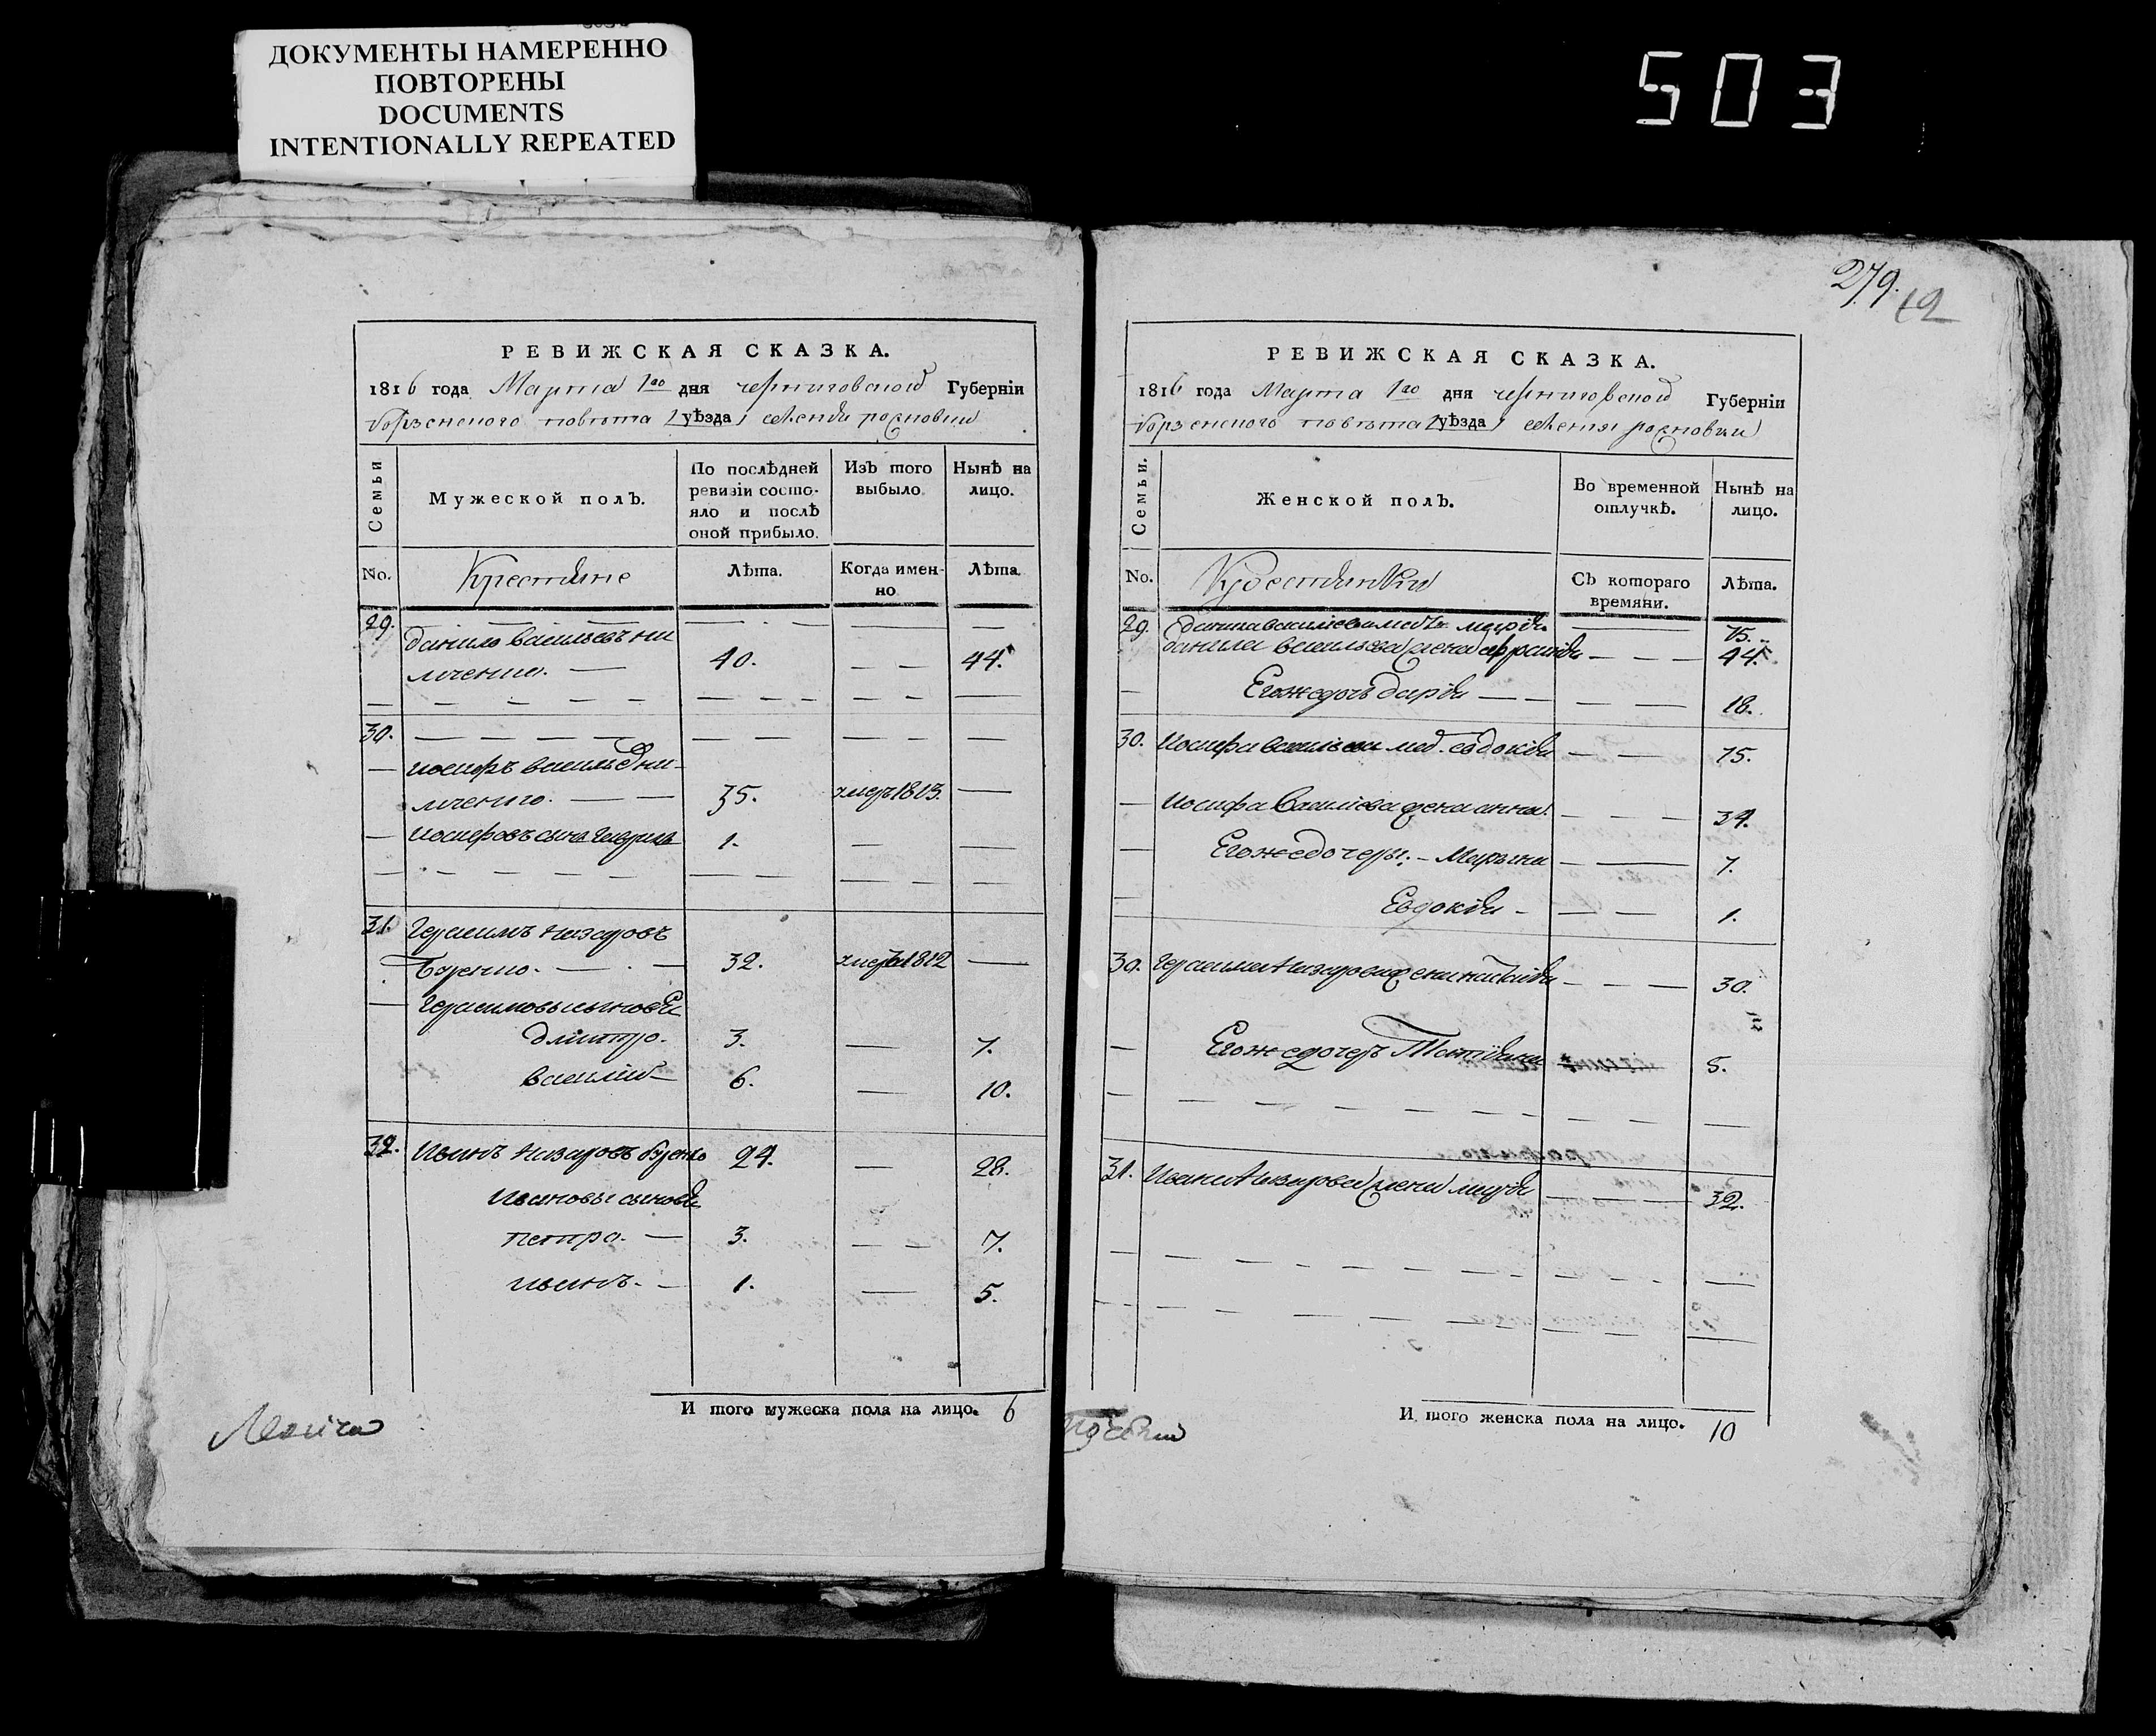 ДОКУМЕНТЫ НАМЕРЕННО
ПОВТОРЕНЫ
DOCUMENTS
INTENTIONALLY REPEATED
503
РЕВИЖСКАЯ СКАЗКА.
1816 года Марта 1го дня черниговской Губерніи
борзенского повѣта уѣзда
Семьи
Мужеской полъ.
По послѣдней
ревизіи состо-
яло и послѣ
оной прибыло.
Изъ того
выбыло.
Нынѣ на
лицо.
No.
Крестяне
Лѣта.
Когда имен-
но
Лѣта.
29.
данило васильевъ
40. 44.
30.
иосифъ
35. умеръ 1813.
иосифовъ сынъ гаврила 1.
31. Герасимъ назаровъ
Буенко. 32. умеръ 1812
Герасимовы сыновя
дмитро. 3. 7.
василій 6. 10.
32. Иванъ Назаровъ буенко 24. 28.
Ивановы сыновя
петро. 3. 7.
иванъ. 1. 5.
И того мужеска пола на лицо. 6
279.
12
РЕВИЖСКАЯ СКАЗКА.
1816 года Марта 1го дня черниговской Губерніи
борзенского повѣта уѣзда селения
Семьи.
Женской полъ.
Во временной
отлучкѣ.
Нынѣ на
лицо.
No.
Крестянки
Съ котораго
времяни.
Лѣта.
29. марія 75.
данила васильева жена 44.
Егожедочь дарія 18.
30. Иосифа васильева евдокія 75.
Иосифа Василіева жена анна. 34.
Егожедочеры. Марына 7.
Евдокія 1.
30. Герасима Назарова жена 30.
Егожедочеръ 5.
31. Ивана Назарова жена 32.
И того женска пола на лицо. 10